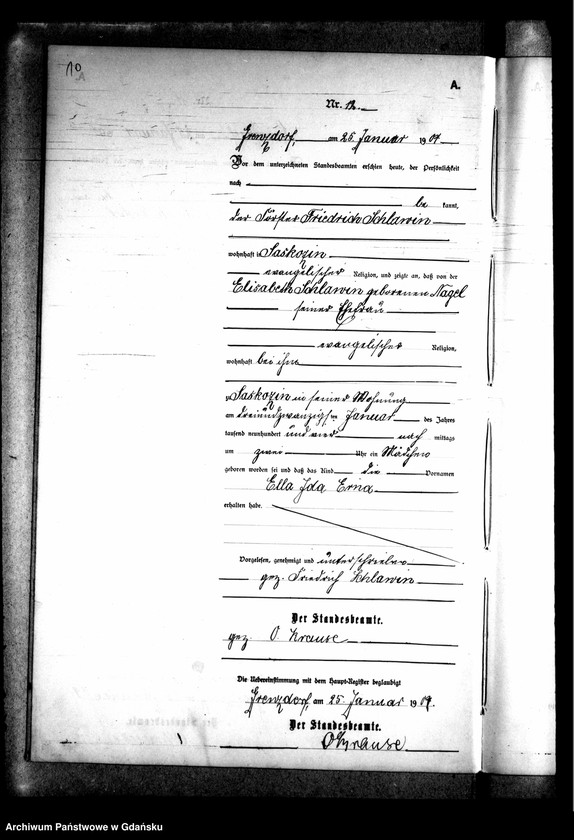 10
A.
Nr. 12.
Grenzdorf, am 25. Januar 1904
Vor dem unterzeichneten Standesbeamten erschien heute, der Persönlichkeit
nach
be kannt,
der Förster Friedrich Schlawin
wohnhaft in Saskozin
evangelischer Religion, und zeigte an, daß von der
Elisabeth Schlawin geborenen Nagel
seiner Ehefrau
evangelischer Religion,
wohnhaft bei ihm
zu Saskozin in seiner Wohnung
am dreiundzwanzigsten Januar des Jahres
tausend neunhundert und vier nach mittags
um zwei Uhr ein Mädchen
geboren worden sei und daß das Kind die Vornamen
Ella Ida Erna
erhalten habe.
Vorgelesen, genehmigt und unterschrieben
gez. Friedrich Schlawin
Der Standesbeamte.
gez. O Krause
Die Uebereinstimmung mit dem Haupt-Register beglaubigt
Grenzdorf, am 25. Januar 1904.
Der Standesbeamte.
O Krause
Archiwum Państwowe w Gdańsku